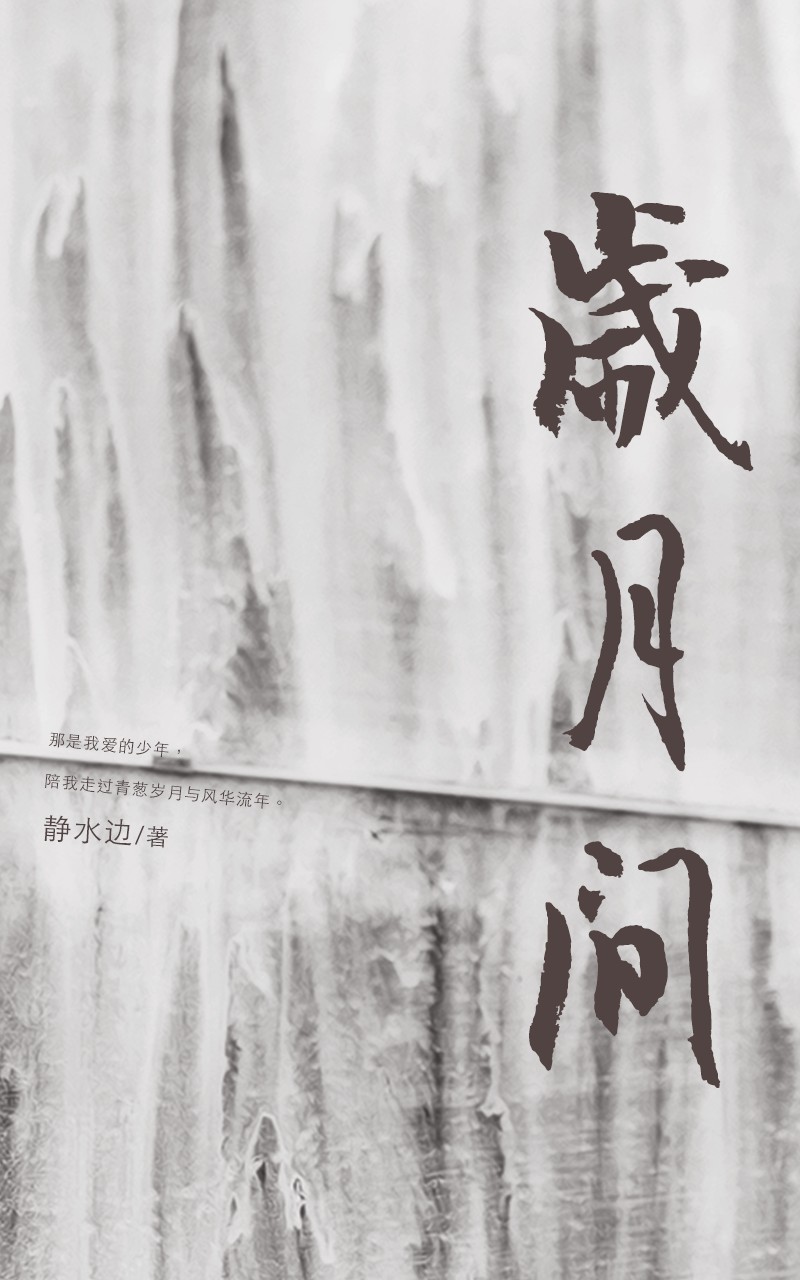 歲月间
那是我爱的少年，
陪我走过青葱岁月与风华流年。
静水边/著